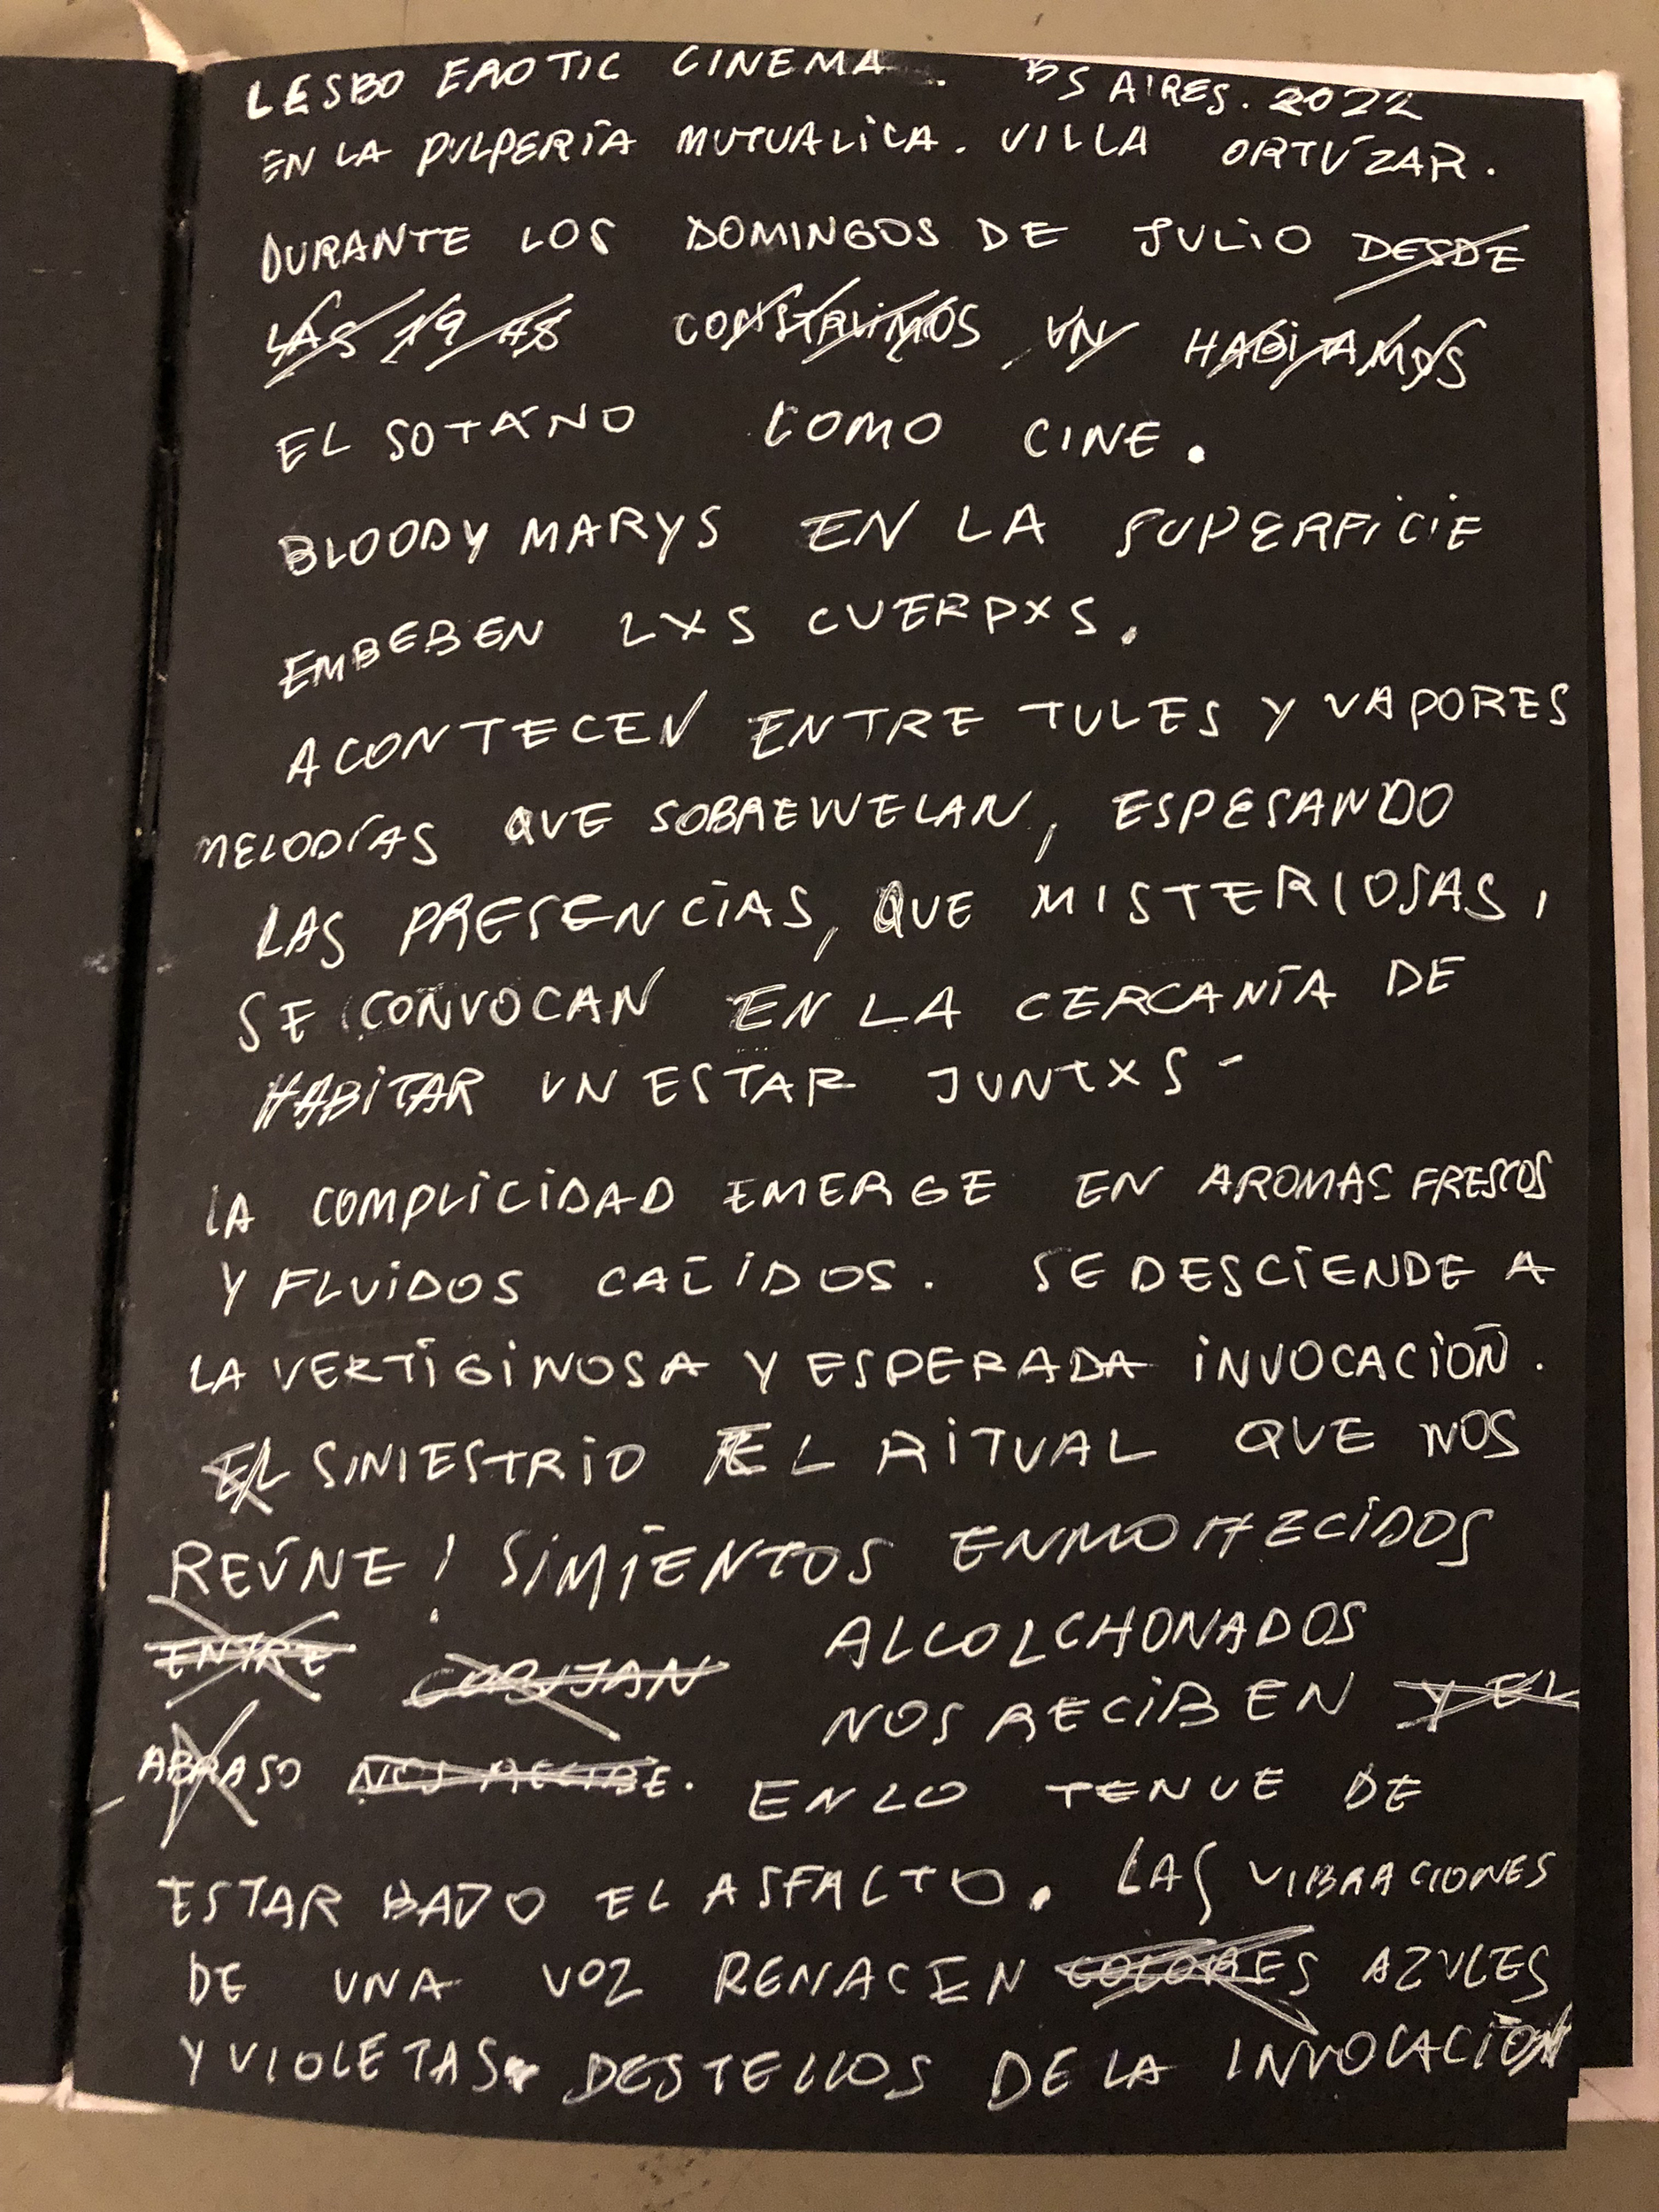 LESBO EROTIC CINEMA. BS AIRES. 2022
EN LA PULPERÍA MUTUALICA. VILLA ORTÚZAR.
DURANTE LOS DOMINGOS DE JULIO DESDE
LAS 19 HS CONSTRUIMOS UN HABITAMOS
EL SOTÁNO COMO CINE.
BLOODY MARYS EN LA SUPERFICIE
EMBEBEN LXS CUERPXS.
ACONTECEN ENTRE TULES Y VAPORES
MELODÍAS QUE SOBREVUELAN, ESPESANDO
LAS PRESENCIAS, QUE MISTERIOSAS,
SE CONVOCAN EN LA CERCANÍA DE
HABITAR UN ESTAR JUNTXS -
LA COMPLICIDAD EMERGE EN AROMAS FRESCOS
Y FLUIDOS CALIDOS. SE DESCIENDE A
LA VERTIGINOSA Y ESPERADA INVOCACIÓN.
EL SINIESTRIO EL RITUAL QUE NOS
REÚNE! SIMIENTOS ENMOHECIDOS
ENTRE ALCOLCHONADOS
NOS RECIBEN Y EL
ABRASO NOS RECIBE. EN LO TENUE DE
ESTAR BAJO EL ASFALTO. LAS VIBRACIONES
DE UNA VOZ RENACEN COLORES AZULES
Y VIOLETAS. DESTELLOS DE LA INVOCACIÓN